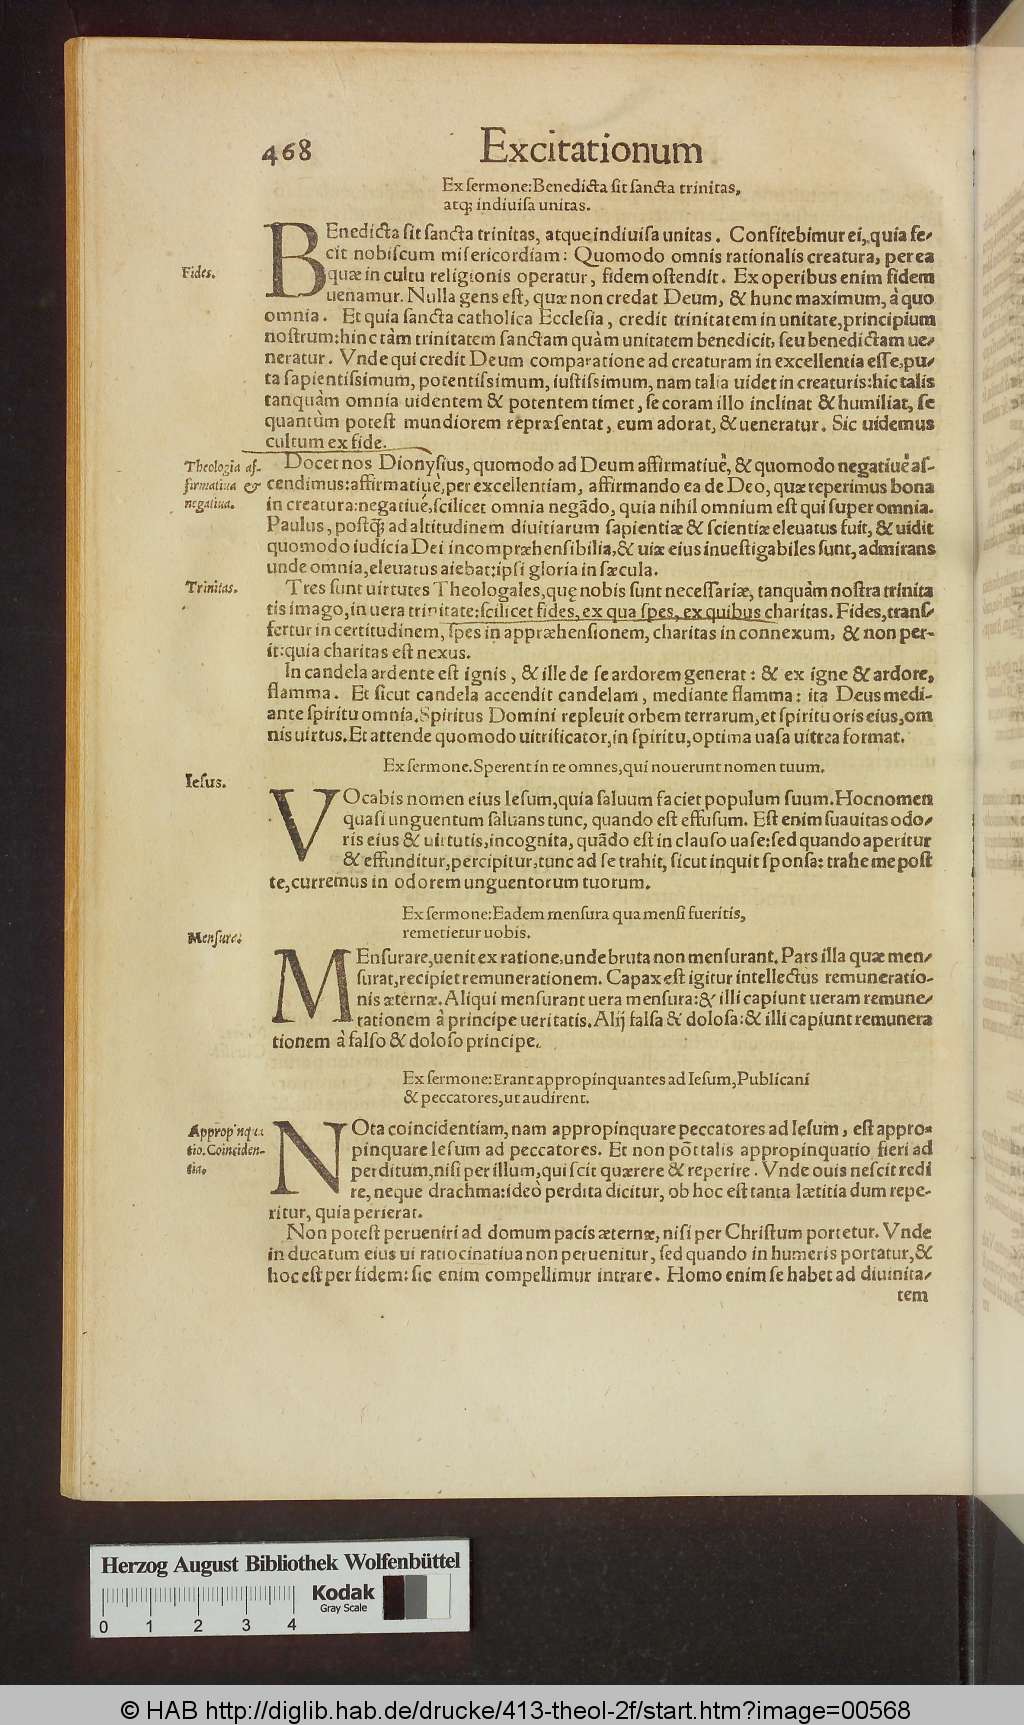 468
Excitationum
Ex sermone: Benedicta sit sancta trinitas,
atq; indiuisa unitas.
BEnedicta sit sancta trinitas, atque indiuisa unitas. Confitebimur ei, quia fe-
cit nobiscum misericordiam: Quomodo omnis rationalis creatura, per ea
Fides.
quæ in cultu religionis operatur, fidem ostendit. Ex operibus enim fidem
uenamur. Nulla gens est, quæ non credat Deum, & hunc maximum, à quo
omnia. Et quia sancta catholica Ecclesia, credit trinitatem in unitate, principium
nostrum: hinc tàm trinitatem sanctam quàm unitatem benedicit, seu benedictam ue-
neratur. Vnde qui credit Deum comparatione ad creaturam in excellentia esse, pu-
ta sapientissimum, potentissimum, iustissimum, nam talia uidet in creaturis: hic talis
tanquàm omnia uidentem & potentem timet, se coram illo inclinat & humiliat, se
quantùm potest mundiorem repræsentat, eum adorat, & ueneratur. Sic uidemus
cultum ex fide.
Theologia af-
firmatiua &
negatiua.
Docet nos Dionysius, quomodo ad Deum affirmatiuè, & quomodo negatiuè as-
cendimus: affirmatiuè, per excellentiam, affirmando ea de Deo, quæ reperimus bona
in creatura: negatiuè, scilicet omnia negãdo, quia nihil omnium est qui super omnia.
Paulus, postq̃; ad altitudinem diuitiarum sapientiæ & scientiæ eleuatus fuit, & uidit
quomodo iudicia Dei incompræhensibilia, & uiæ eius inuestigabiles sunt, admirans
unde omnia, eleuatus aiebat: ipsi gloria in sæcula.
Trinitas.
Tres sunt uirtutes Theologales, quę nobis sunt necessariæ, tanquàm nostra trinita
tis imago, in uera trinitate: scilicet fides, ex qua spes, ex quibus charitas. Fides, trans-
fertur in certitudinem, spes in appræhensionem, charitas in connexum, & non per-
it: quia charitas est nexus.
In candela ardente est ignis, & ille de se ardorem generat: & ex igne & ardore,
flamma. Et sicut candela accendit candelam, mediante flamma: ita Deus medi-
ante spiritu omnia. Spiritus Domini repleuit orbem terrarum, et spiritu oris eius, om
nis uirtus. Et attende quomodo uitrificator, in spiritu, optima uasa uitrea format.
Ex sermone. Sperent in te omnes, qui nouerunt nomen tuum.
Iesus.
VOcabis nomen eius Iesum, quia saluum faciet populum suum. Hoc nomen
quasi unguentum saluans tunc, quando est effusum. Est enim suauitas odo-
ris eius & uirtutis, incognita, quãdo est in clauso uase: sed quando aperitur
& effunditur, percipitur, tunc ad se trahit, sicut inquit sponsa: trahe me post
te, curremus in odorem unguentorum tuorum.
Ex sermone: Eadem mensura qua mensi fueritis,
remetietur uobis.
Mensure.
MEnsurare, uenit ex ratione, unde bruta non mensurant. Pars illa quæ men-
surat, recipiet remunerationem. Capax est igitur intellectus remuneratio-
nis æternæ. Aliqui mensurant uera mensura: & illi capiunt ueram remune-
rationem à principe ueritatis. Alij falsa & dolosa: & illi capiunt remunera
tionem à falso & doloso principe.
Ex sermone: Erant appropinquantes ad Iesum, Publicani
& peccatores, ut audirent.
Appropinqua
tio. Coinciden-
tia.
NOta coincidentiam, nam appropinquare peccatores ad Iesum, est appro-
pinquare Iesum ad peccatores. Et non põt talis appropinquatio fieri ad
perditum, nisi per illum, qui scit quærere & reperire. Vnde ouis nescit redi
re, neque drachma: ideò perdita dicitur, ob hoc est tanta lætitia dum repe-
ritur, quia perierat.
Non potest perueniri ad domum pacis æternæ, nisi per Christum portetur. Vnde
in ducatum eius ui ratiocinatiua non peruenitur, sed quando in humeris portatur, &
hoc est per fidem: sic enim compellimur intrare. Homo enim se habet ad diuinita-
tem
Herzog August Bibliothek Wolfenbüttel
Kodak
Gray Scale
0 1 2 3 4
© HAB http://diglib.hab.de/drucke/413-theol-2f/start.htm?image=00568